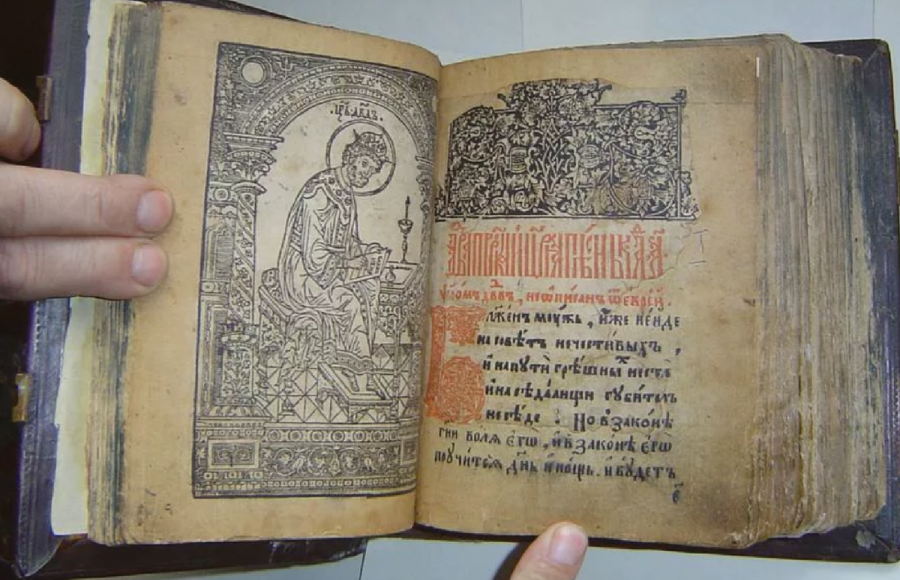 црь двдъ
ѱаломъ двдъ, неѡписанъ ѿ еврей.
Блженъ моужь, иже неиде
на совѣтъ нечестивыхъ,
и на пути грѣшныⷯ неста
и на сѣдалищи губитель
не сѣде : Но в законѣ
гни волѧ егѡ, и в законѣ егѡ
поучитсѧ днь и нощь. и будетъ